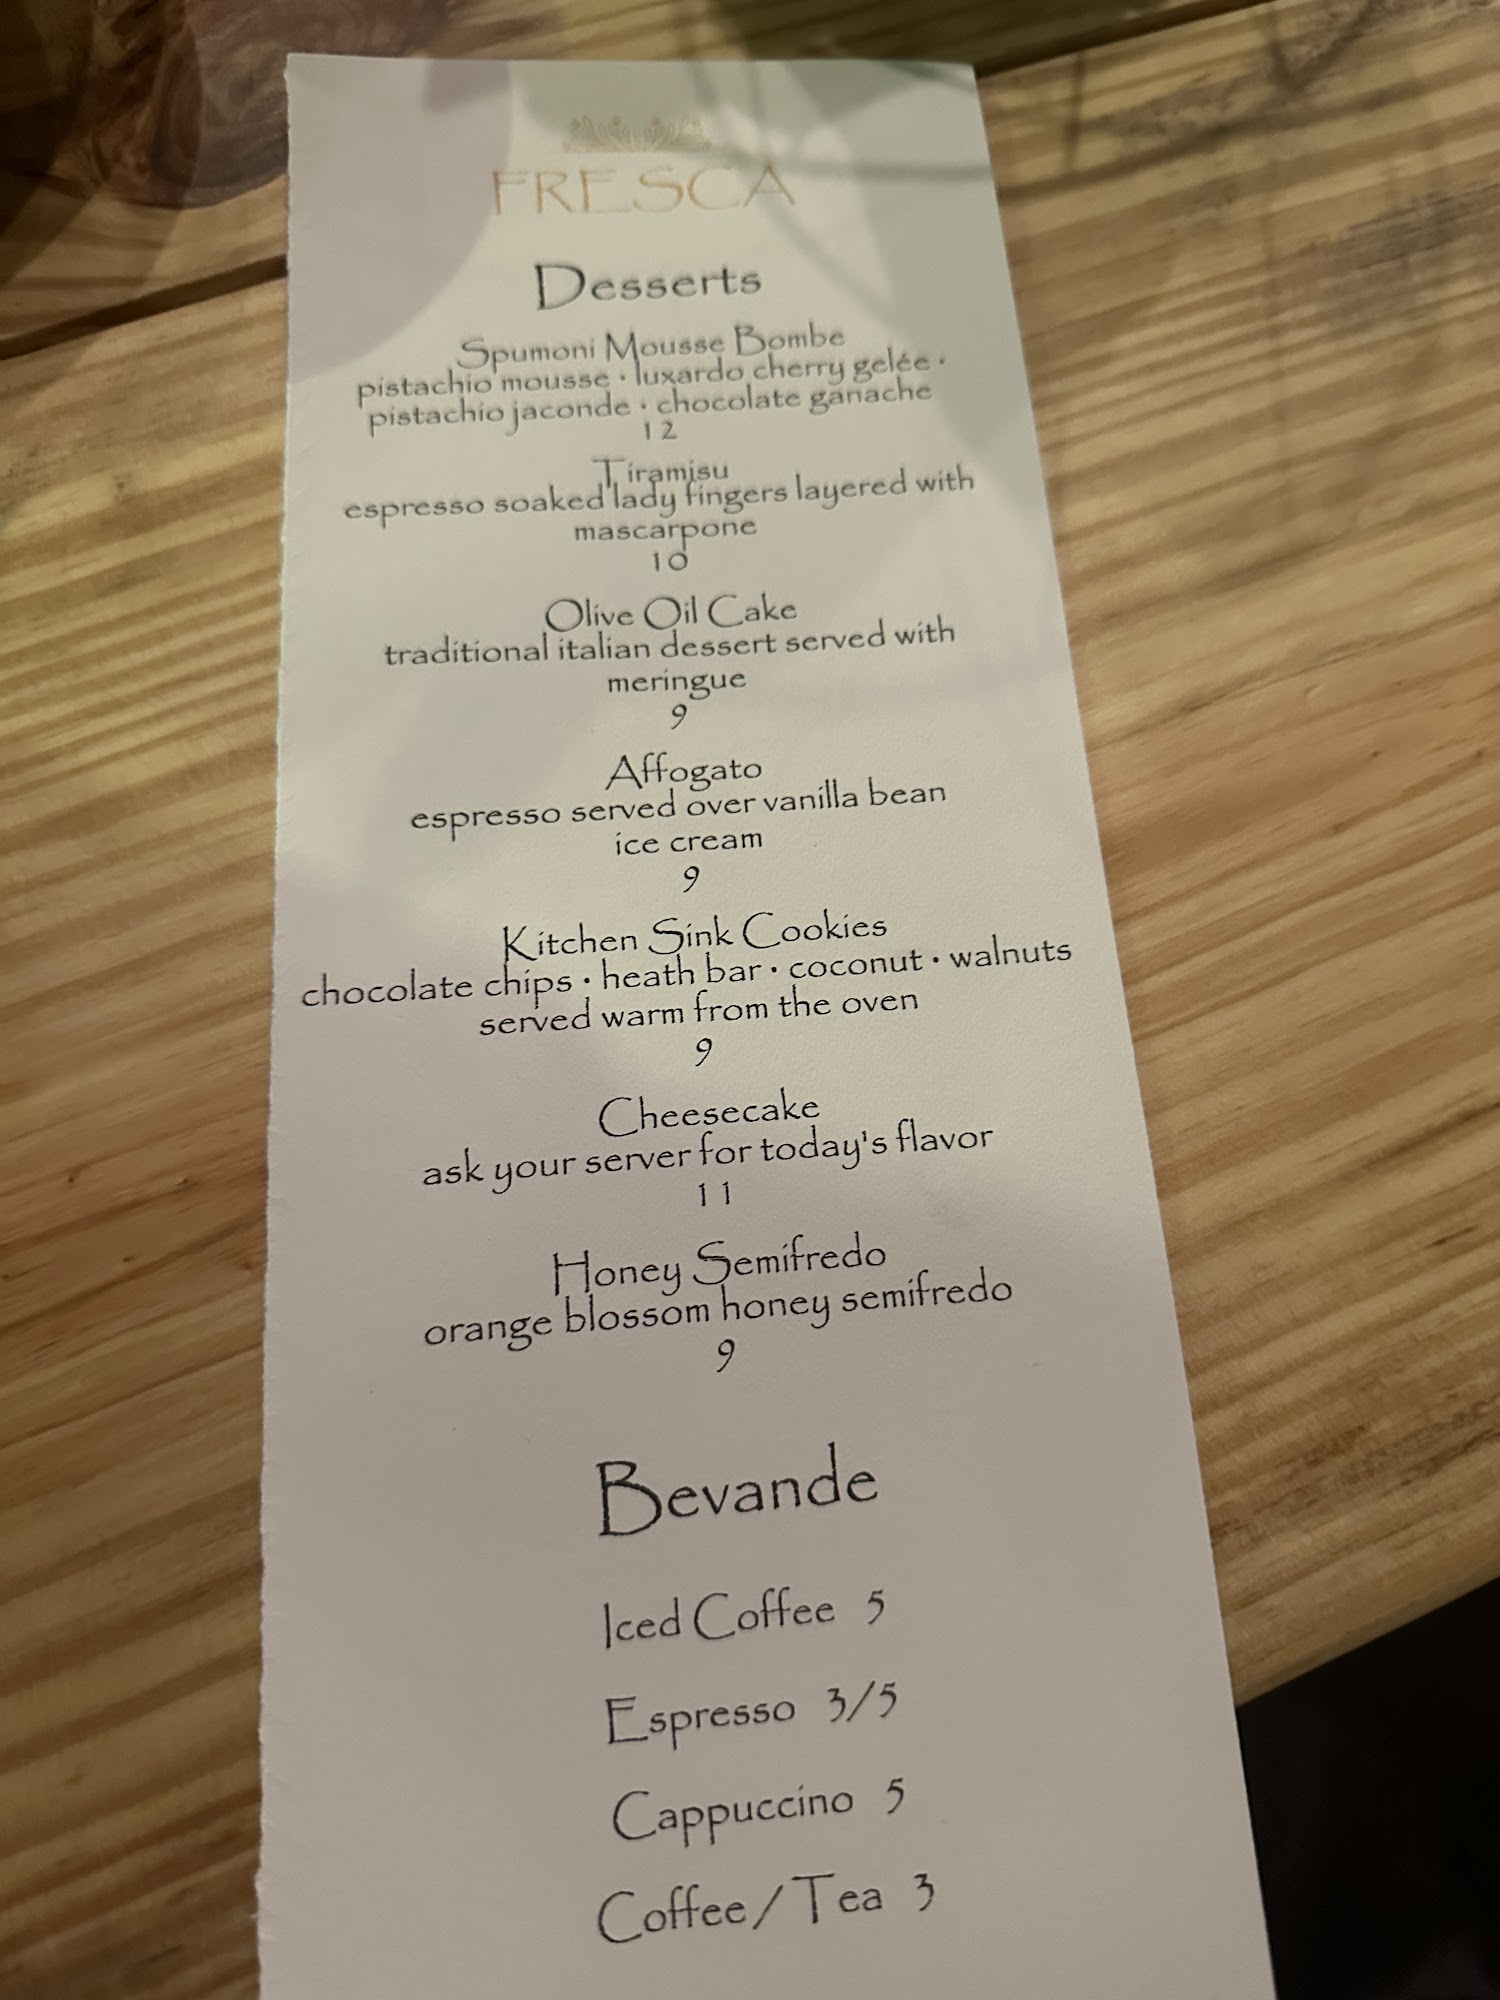 FRESCA
Desserts
Spumoni Mousse Bombe
pistachio mousse • luxardo cherry gelée •
pistachio jaconde • chocolate ganache
12
Tiramisu
espresso soaked lady fingers layered with
mascarpone
10
Olive Oil Cake
traditional italian dessert served with
meringue
9
Affogato
espresso served over vanilla bean
ice cream
9
Kitchen Sink Cookies
chocolate chips • heath bar • coconut • walnuts
served warm from the oven
9
Cheesecake
ask your server for today's flavor
11
Honey Semifredo
orange blossom honey semifredo
9
Bevande
Iced Coffee 5
Espresso 3/5
Cappuccino 5
Coffee/Tea 3